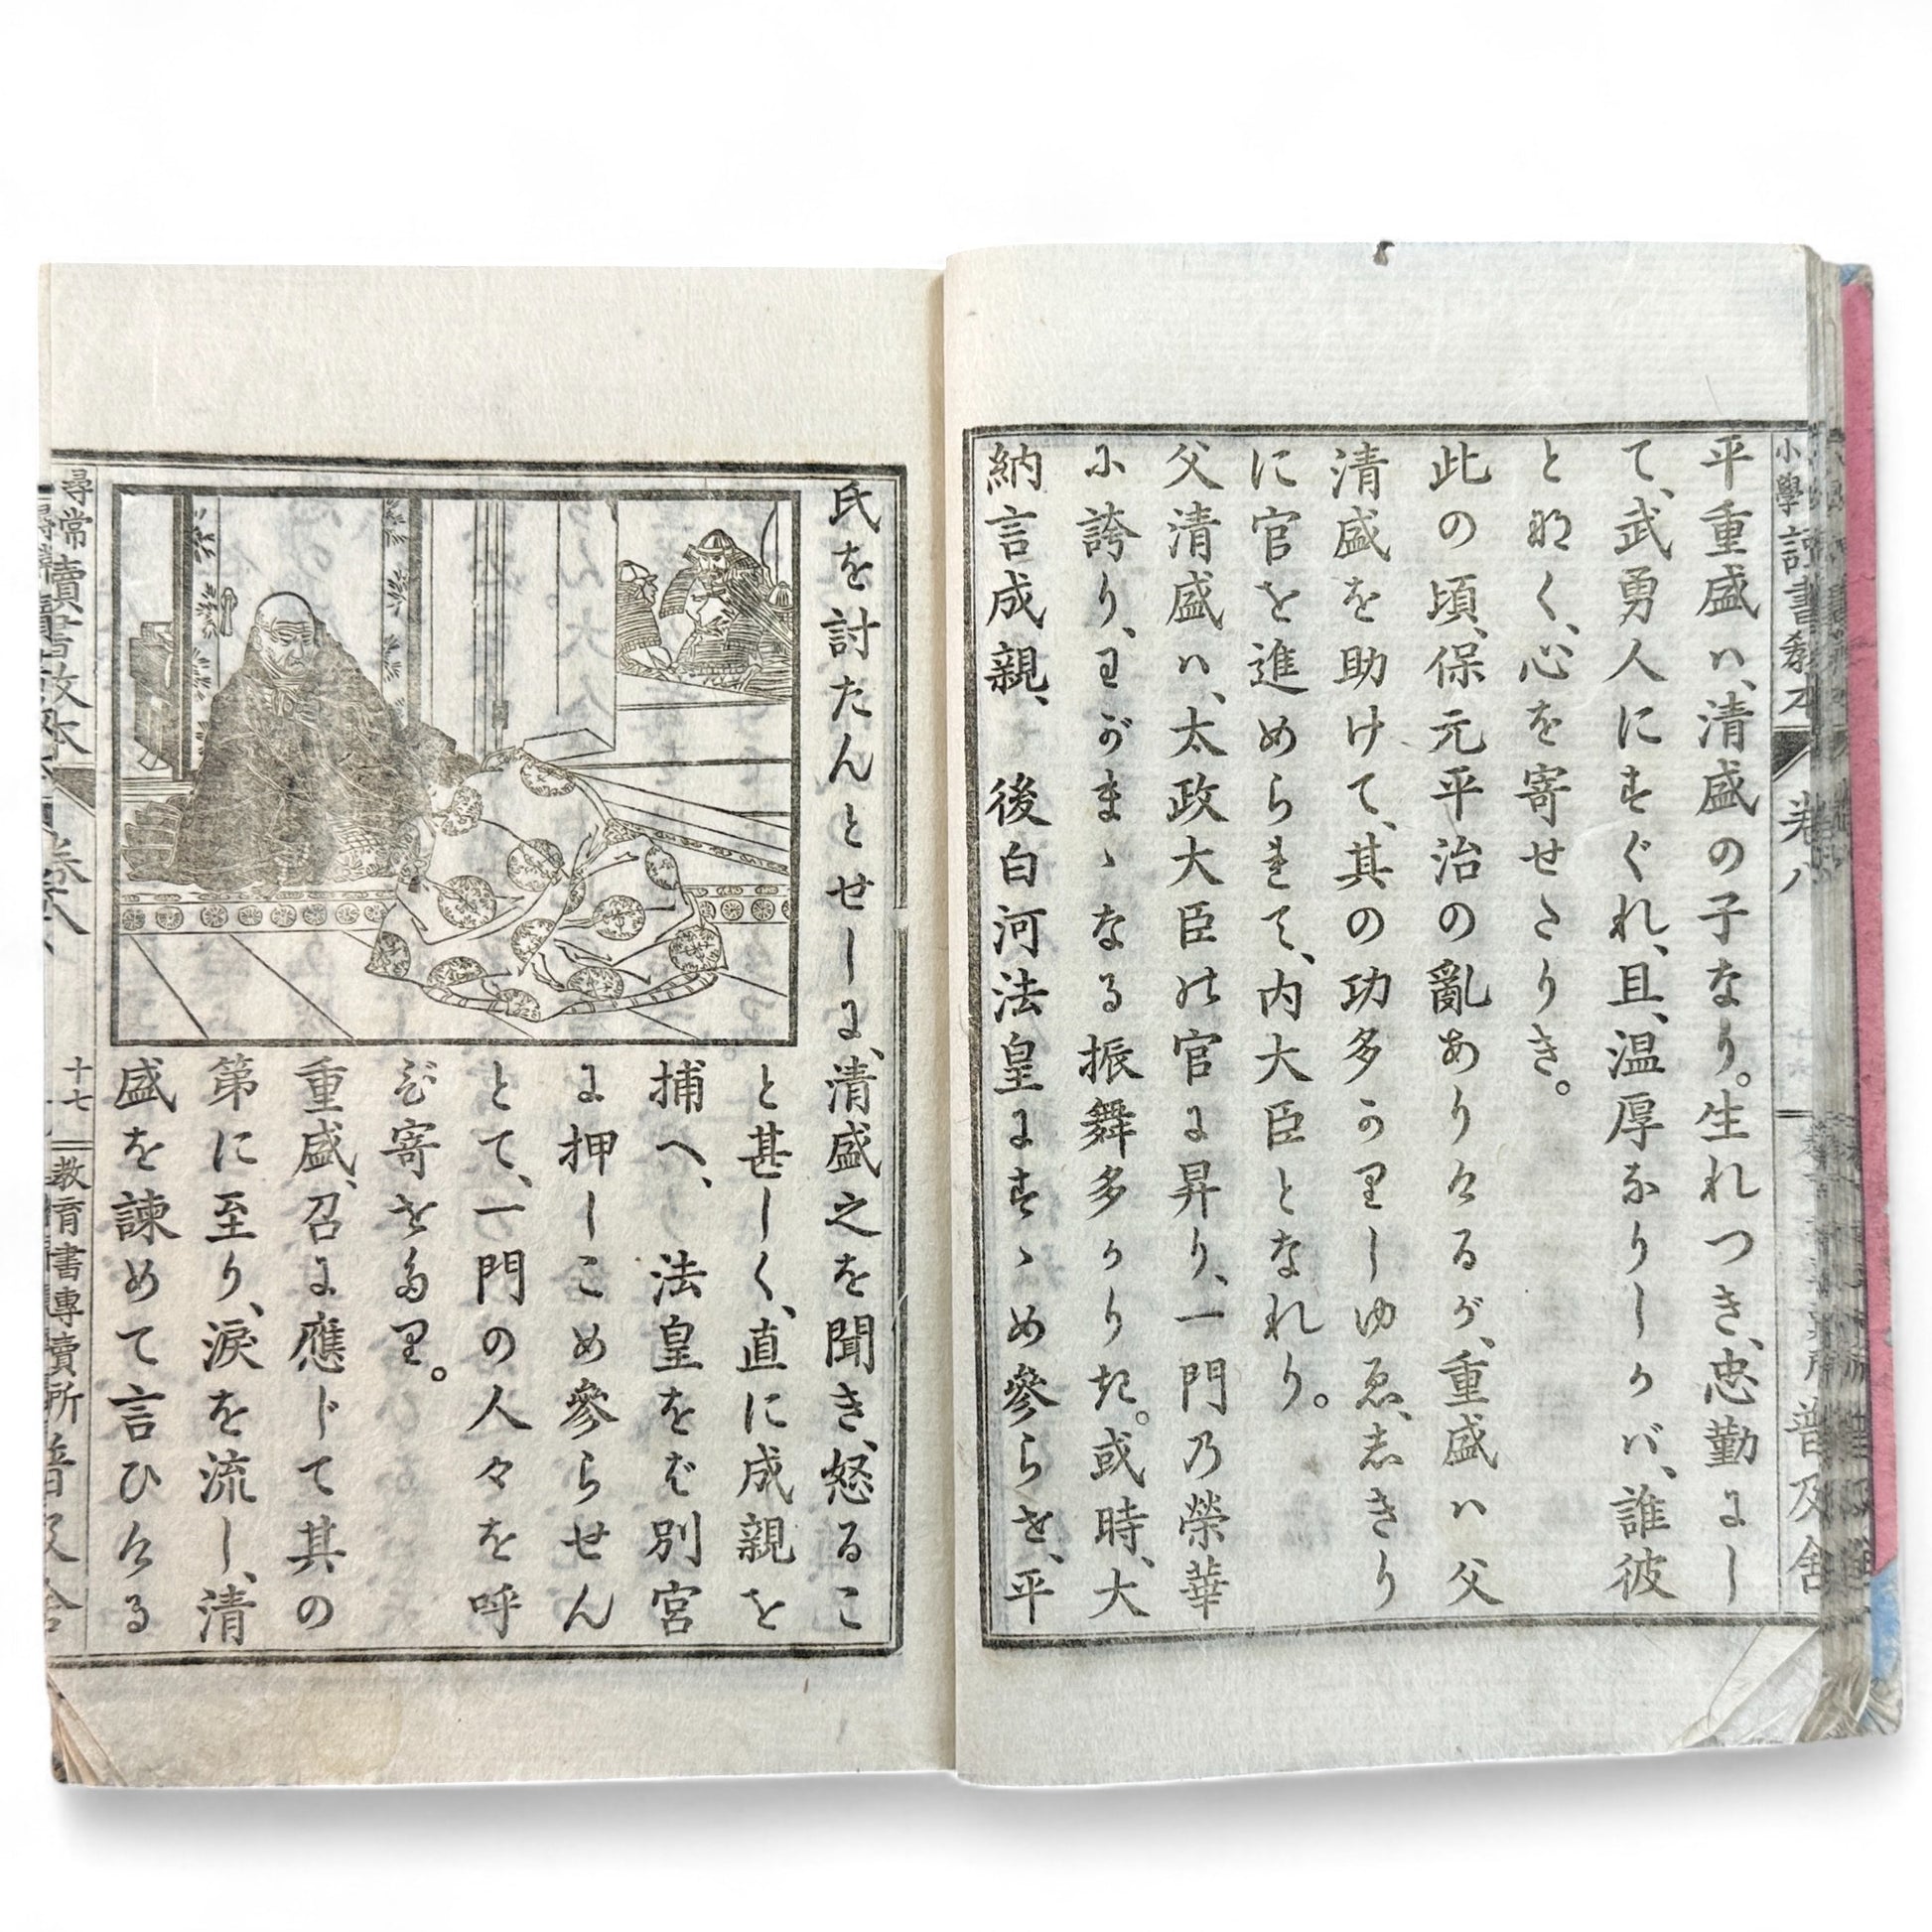 平重盛ハ、清盛の子なり。生れつき、忠勤にし
て、武勇人にすぐれ、且、温厚なりしかバ、誰彼
となく、心を寄せさりき。
此の頃、保元平治の亂ありけるが、重盛ハ父
清盛を助けて、其の功多かりしゆゑ、志きり
に官を進めらきて、内大臣となれり。
父清盛ハ、太政大臣の官に昇り、一門乃榮華
に誇り、わがまゝなる振舞多かりき。或時、大
納言成親、後白河法皇にすゝめ參らせ、平
氏を討たんとせしに、清盛之を聞き、怒るこ
と甚しく、直に成親を
捕へ、法皇をバ別宮
に押しこめ參らせん
とて、一門の人々を呼
び寄せたり。
重盛、召に應じて其の
第に至り、涙を流し、清
盛を諫めて言ひける
小學讀書教本
卷八
普及舍
尋常讀書教本
卷八
十七
教育書專賣所
普及舍